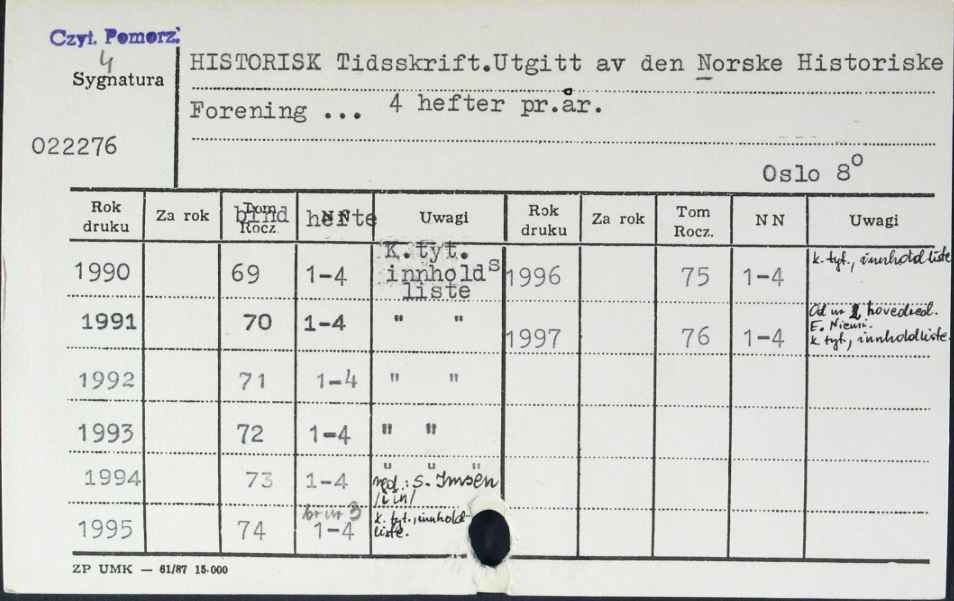 Czyt. Pomorz.
4
Sygnatura
022276
HISTORISK Tidsskrift.Utgitt av den Norske Historiske
Forening ... 4 hefter pr.år.
Oslo 8°
Rok druku Za rok Tom Rocz. bind NN hefte Uwagi Rok druku Za rok Tom Rocz. NN Uwagi
1990 69 1-4 K.tyt. innholds liste 1996 75 1-4 k. tyt., innholdliste
1991 70 1-4 " " 1997 76 1-4 Od nr 2 hovedred.
E.
k. tyt., innholdliste.
1992 71 1-4 " "
1993 72 1-4 " "
1994 73 1-4 " " "
red.: S. Imsen
1995 74 br nr 3
1-4 k. tyt., innhold-
liste.
ZP UMK — 61/87 15.000